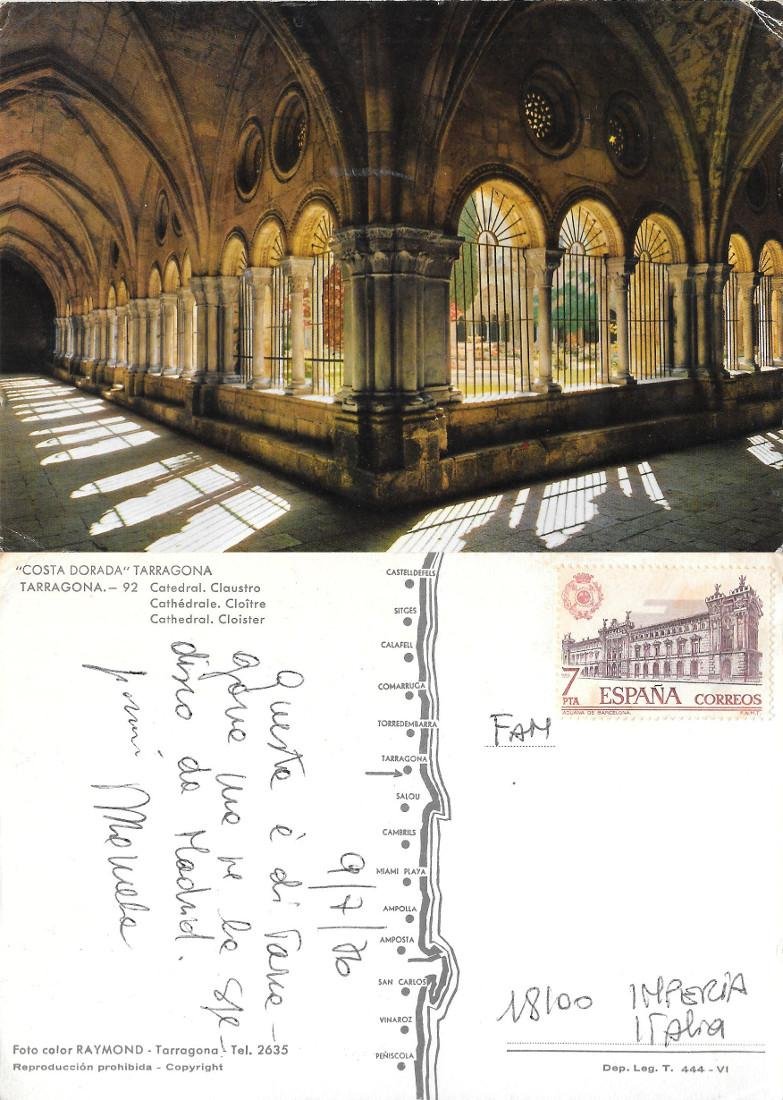 "COSTA DORADA" TARRAGONA
TARRAGONA. — 92 Catedral. Claustro
Cathédrale. Cloître
Cathedral. Cloister
9/7/76
Questa è di Tarra-
gona ma ve la spe-
disco da Madrid.
Manuela
Foto color RAYMOND - Tarragona - Tel. 2635
Reproducción prohibida - Copyright
CASTELLDEFELS
SITGES
CALAFELL
COMARRUGA
TORREDEMBARRA
TARRAGONA
SALOU
CAMBRILS
MIAMI PLAYA
AMPOLLA
AMPOSTA
SAN CARLOS
VINAROZ
PEÑISCOLA
7 PTA ESPAÑA CORREOS
ADUANA DE BARCELONA F.N.M.T.
FAM
18100 IMPERIA
ITALIA
Dep. Leg. T. 444 - VI